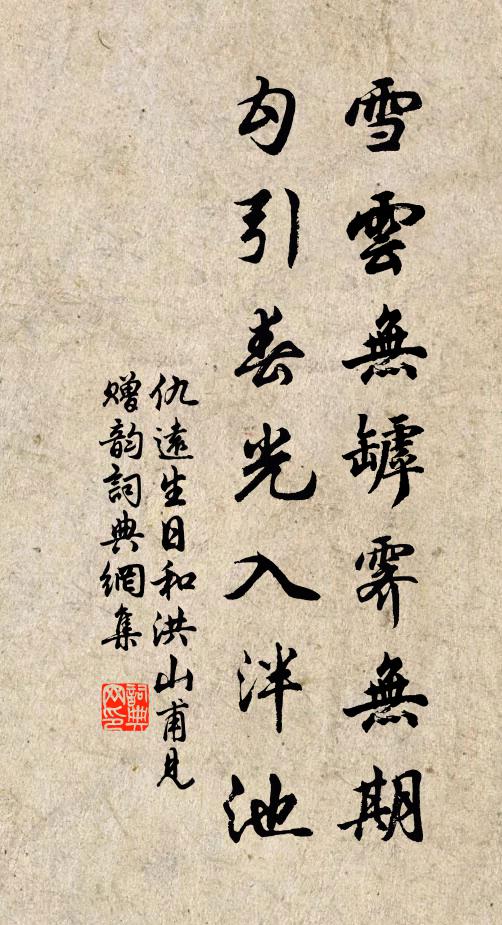 雪雲無罅霽無期
勾引春光入泮池
仇遠生日和洪山甫見
赠韵詞典網集
詞典网印